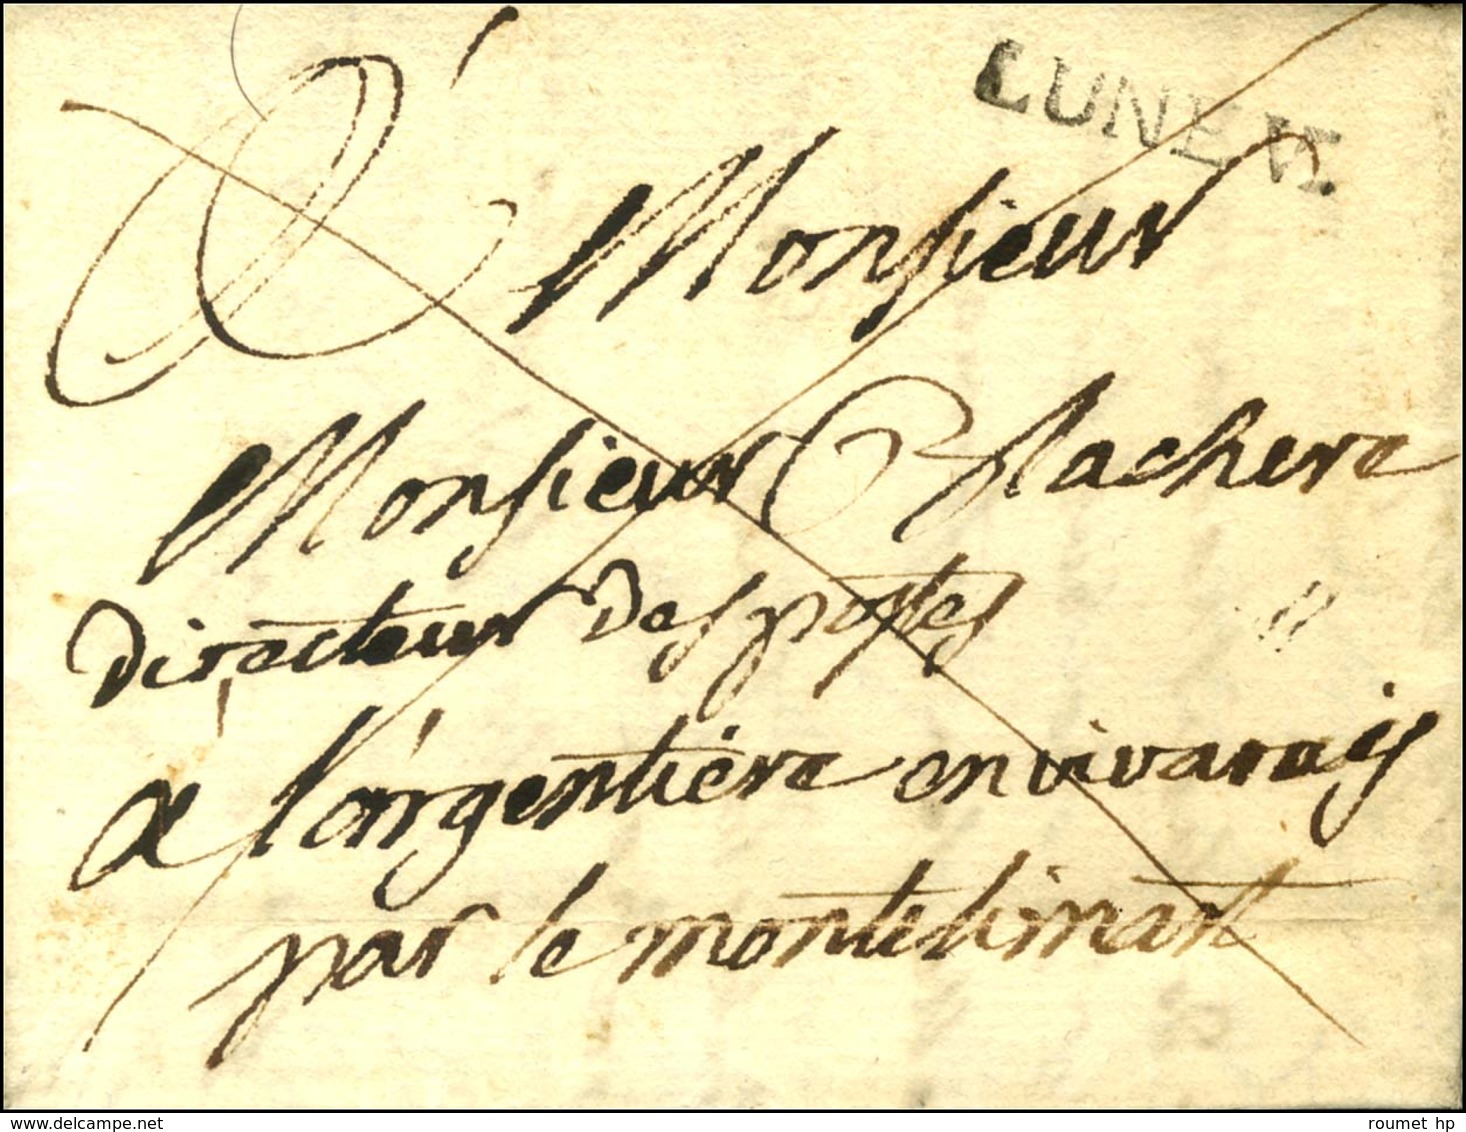 LUNEVI.
A Monsieur
Monsieur Blachere
directeur des postes
a l'argentiére en vivarais
par le montelimart
www.delcampe.net
roumet hp